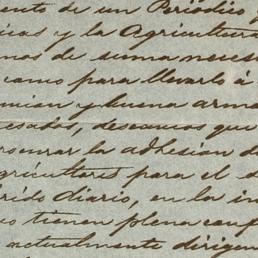 ento de un Periodico
icas y la Agricultura
mos de suma neces
como para llevarlo á
mian y buena arm
esados, deseamos que
procurar la adhesion d
agricultores para el s
rido diario, en la in
os tienen plena conf
actualmente dirigen